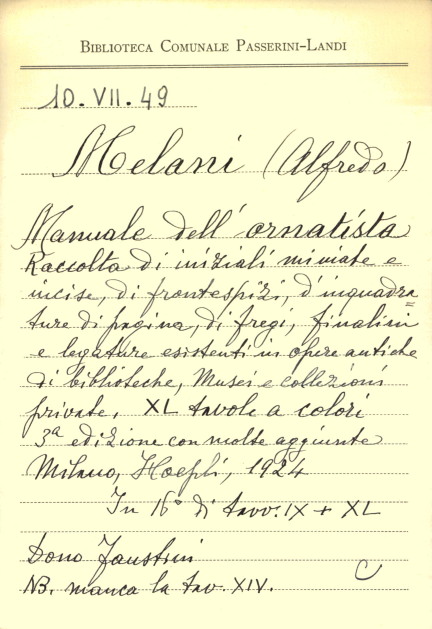 BIBLIOTECA COMUNALE PASSERINI-LANDI
10.VII.49
Melani (Alfredo)
Manuale dell'ornatista
Raccolta di iniziali miniate e
incise, di frontespizi, d'inquadra
ture di pagina, di fregi, finalini
e legature esistenti in opere antiche
di biblioteche, Musei e collezioni
private. XL tavole a colori
3ª edizione con molte aggiunte
Milano, Hoepli, 1924
In 16° di tavv. IX + XL
Dono Faustini
NB. manca la tav. XIV.
C